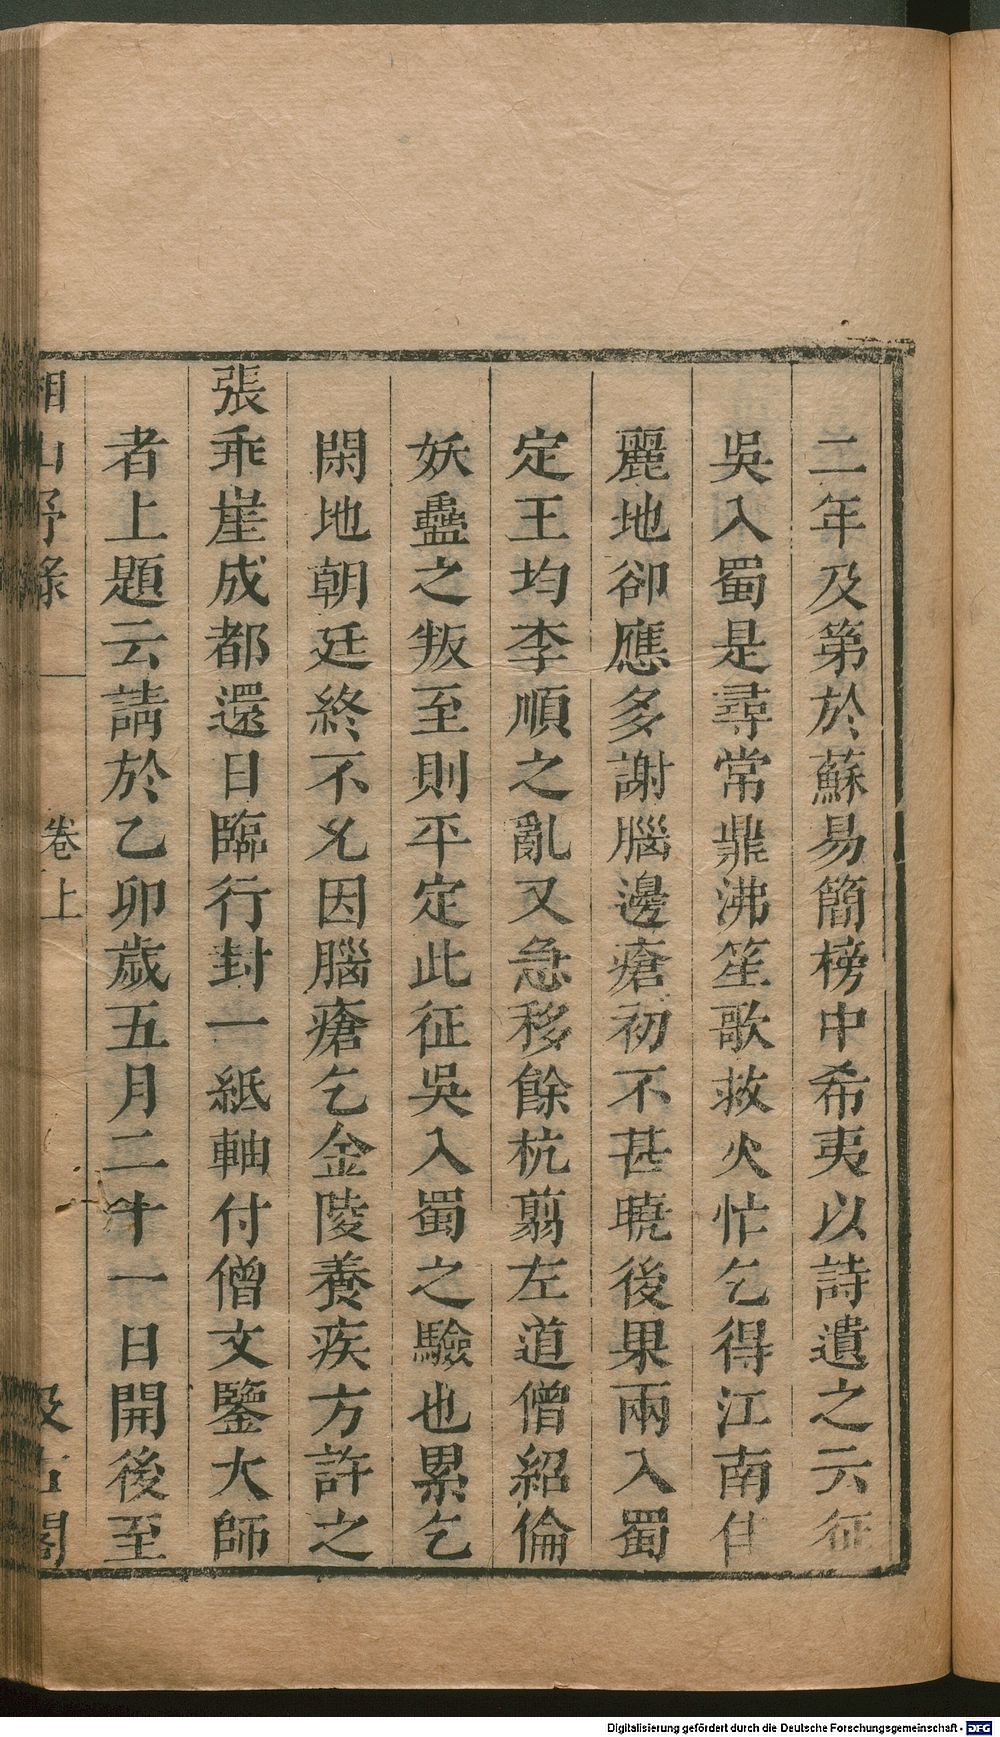 二年及第於蘇易簡榜中希夷以詩遺之云征
吳入蜀是尋常鼎沸笙歌救火忙乞得江南佳
麗地卻應多謝腦邊瘡初不甚曉後果兩入蜀
定王均李順之亂又急移餘杭翦左道僧紹倫
妖蠱之叛至則平定此征吳入蜀之驗也累乞
閑地朝廷終不允因腦瘡乞金陵養疾方許之
張乖崖成都還日臨行封一紙軸付僧文鑒大師
者上題云請於乙卯歲五月二十一日開後至
湘山野錄 卷上 汲古閣
Digitalisierung gefördert durch die Deutsche Forschungsgemeinschaft - DFG